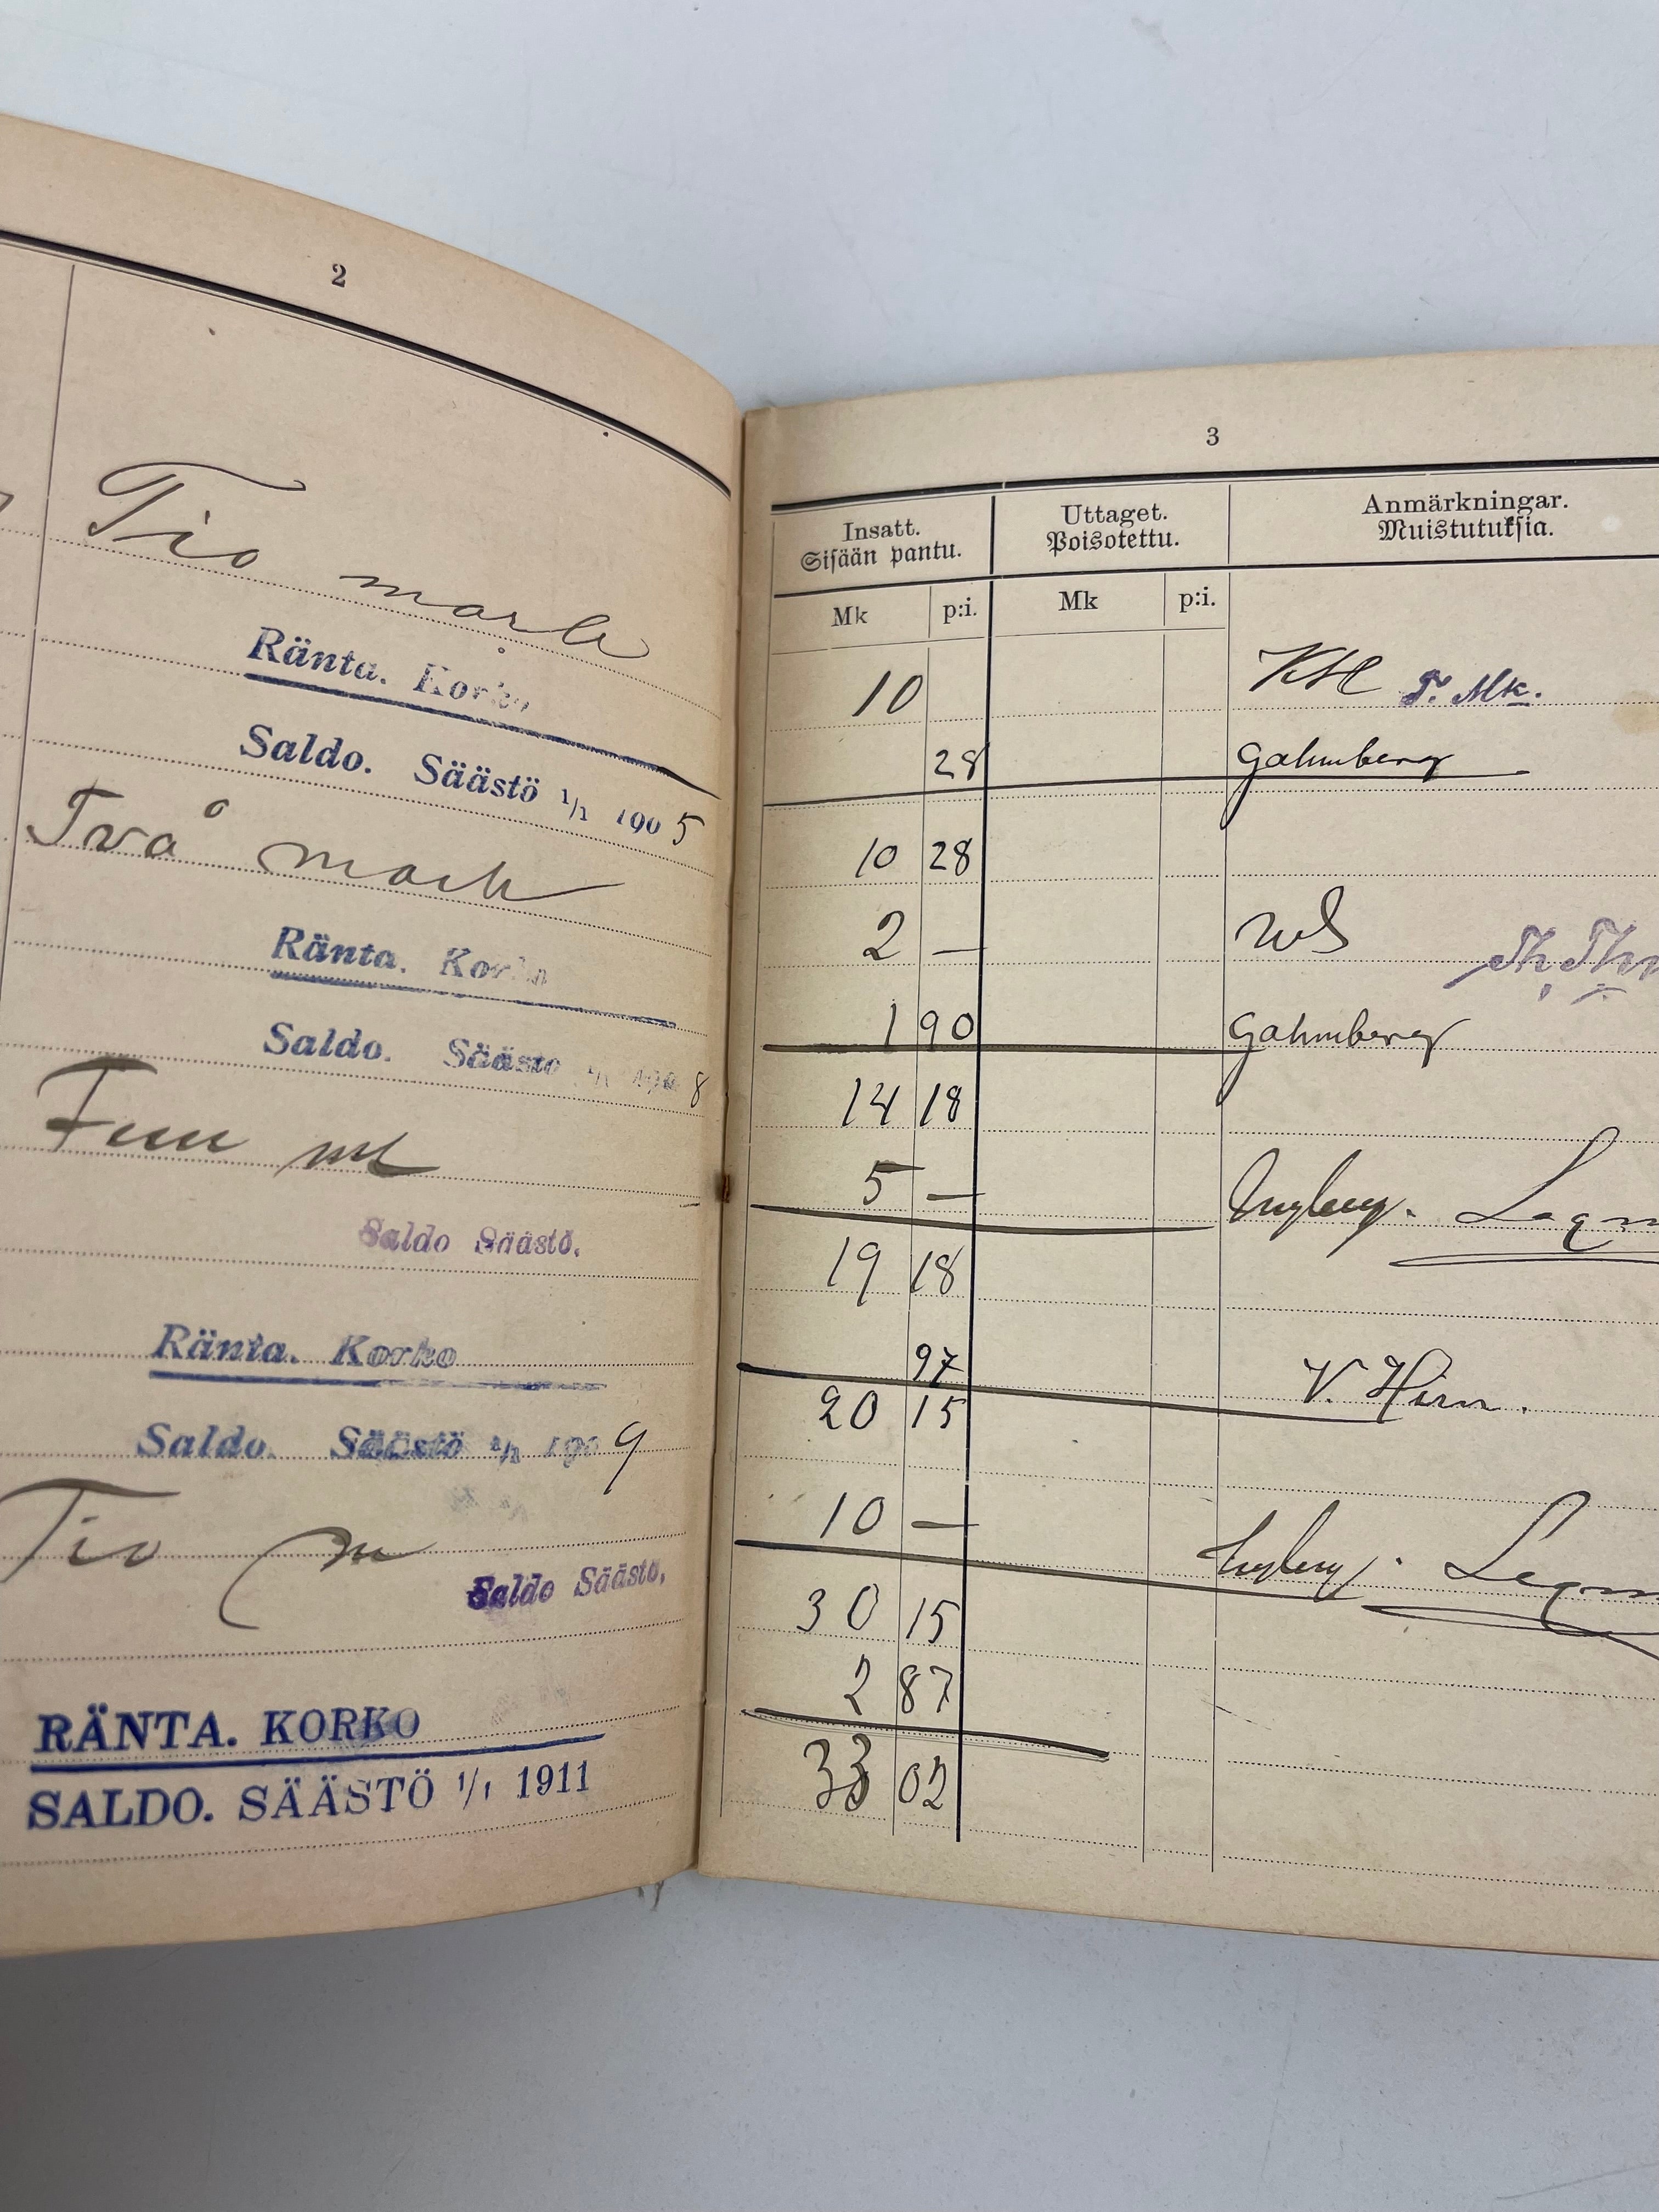 2
Tio mark
Ränta. Korko
Saldo. Säästö 1/1 1905
Två mark
Ränta. Korko
Saldo. Säästö 1/1 1908
Fem mk
Saldo Säästö.
Ränta. Korko
Saldo. Säästö 1/1 1909
Tio m
Saldo Säästö.
RÄNTA. KORKO
SALDO. SÄÄSTÖ 1/1 1911
3
Insatt. Uttaget. Anmärkningar.
Sisään pantu. Poisotettu. Muistutuksia.
Mk p:i. Mk p:i.
10 T. Mk.
28 Gahmberg
10 28
2 — WS
1 90 Gahmberg
14 18
5 —
19 18
97 V. Hirn.
20 15
10 —
30 15
2 87
33 02